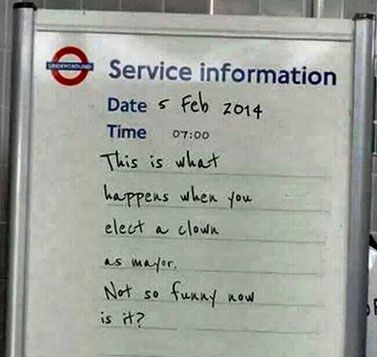 UNDERGROUND
Service information
Date 5 Feb 2014
Time 07:00
This is what
happens when you
elect a clown
as mayor.
Not so funny now
is it?